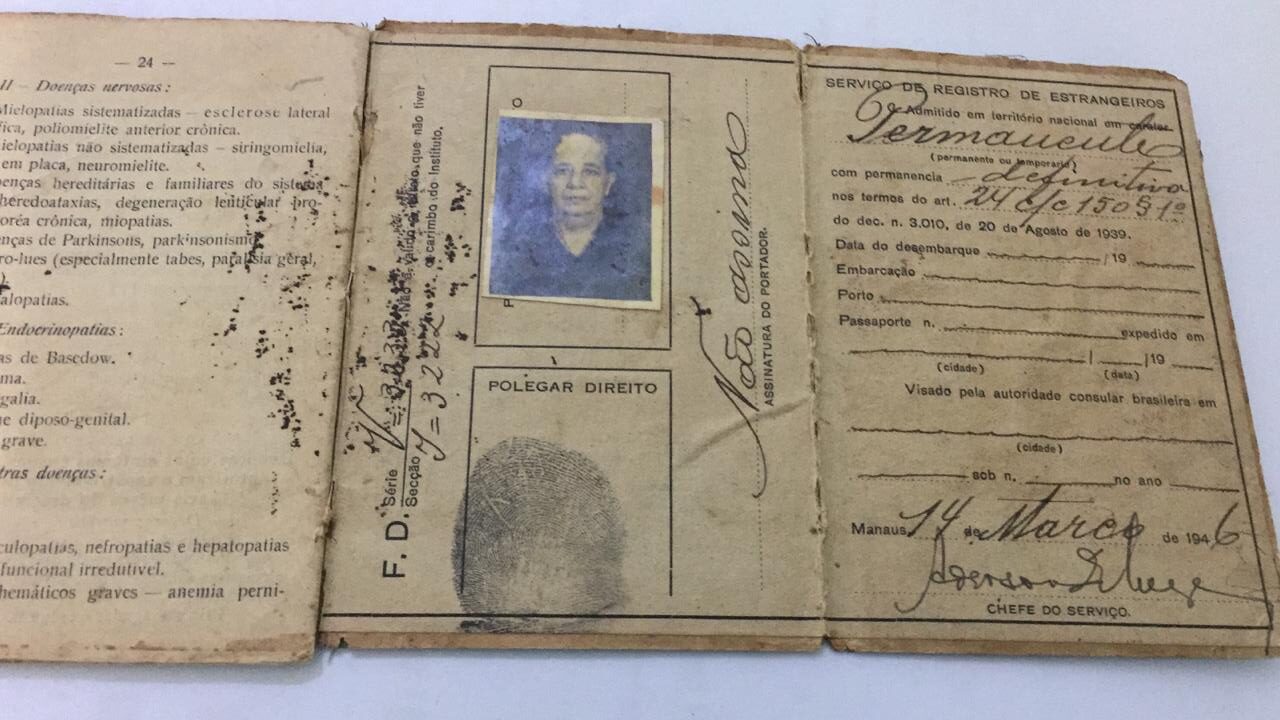 — 24 —
II – Doenças nervosas:
Mielopatias sistematizadas – esclerose lateral
fica, poliomielite anterior crônica.
ielopatias não sistematizadas – siringomielia,
em placa, neuromielite.
enças hereditárias e familiares do sistema
heredoataxias, degeneração lenticular pro-
oréa crônica, miopatias.
nças de Parkinsons, parkinsonismo
ro-lues (especialmente tabes, paralisia geral,
).
alopatias.
Endocrinopatias:
as de Basedow.
ma.
galia.
e diposo-genital.
grave.
tras doenças:
culopatias, nefropatias e hepatopatias
funcional irredutivel.
hemáticos graves — anemia perni-
F. D. Série
Secção
Não é válido se que não tiver
o carimbo do Instituto.
O
F
POLEGAR DIREITO
Não assina
ASSINATURA DO PORTADOR.
SERVIÇO DE REGISTRO DE ESTRANGEIROS
Admitido em território nacional em carater
Permanente
(permanente ou temporario)
com permanencia definitiva
nos termos do art. 24 c/c 150 § 1º
do dec. n. 3.010, de 20 de Agosto de 1939.
Data do desembarque / 19
Embarcação
Porto
Passaporte n. expedido em
/ /19
(cidade) (data)
Visado pela autoridade consular brasileira em
(cidade)
sob n. no ano
Manaus, 14 de Março de 1946
CHEFE DO SERVIÇO.